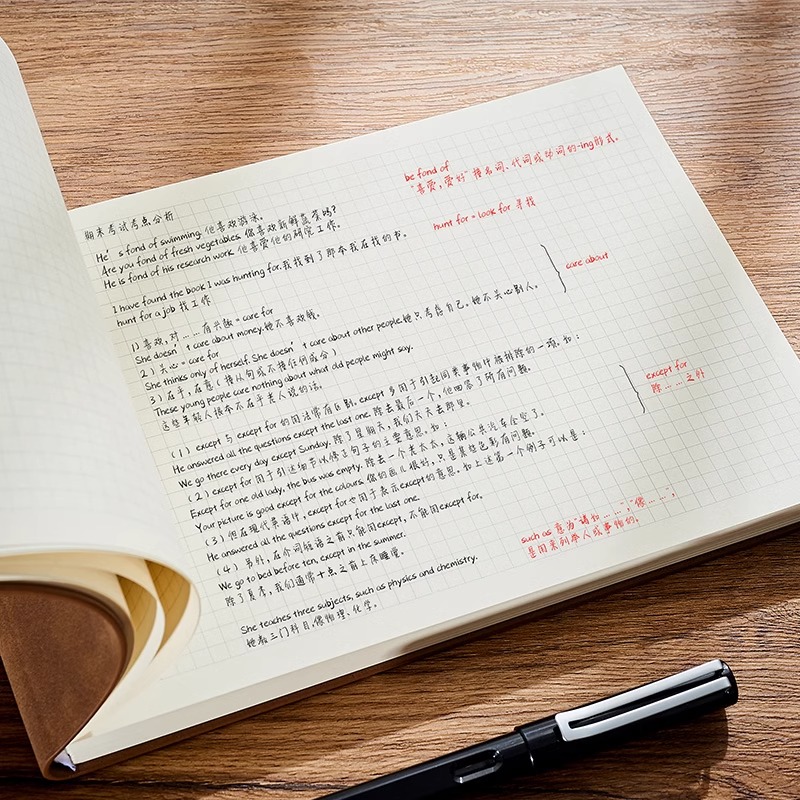 期末考试考点分析
He's fond of swimming. 他喜欢游泳。
Are you fond of fresh vegetables. 你喜欢新鲜蔬菜吗?
He is fond of his research work. 他喜爱他的研究工作。
I have found the book I was hunting for. 我找到了那本我在找的书。
hunt for a job 找工作
1) 喜欢,对……有兴趣 = care for
She doesn't care about money. 她不喜欢钱。
2) 关心 = care for
She thinks only of herself. She doesn't care about other people. 她只考虑自己。她不关心别人。
3) 在乎,在意(接从句或不接任何成分)
These young people care nothing about what old people might say.
这些年轻人根本不在乎老人说的话。
(1) except 与 except for 的用法常有区别。except 多用于引起同类事物中被排除的一项。如:
He answered all the questions except the last one. 除去最后一个,他回答了所有问题。
We go there every day except Sunday. 除了星期天,我们天天去那里。
(2) except for 用于引述细节以修正句子的主要意思。如:
Except for one old lady, the bus was empty. 除去一个老太太,这辆公共汽车全空了。
Your picture is good except for the colours. 你的画儿很好,只是某些色彩有问题。
(3) 但在现代英语中,except for 也用于表示 except 的意思。如上述第一个例子可以是:
He answered all the questions except for the last one.
(4) 另外,在介词短语之前只能用 except,不能用 except for。
We go to bed before ten, except in the summer.
除了夏季,我们通常十点之前上床睡觉。
She teaches three subjects, such as physics and chemistry.
她教三门科目,像物理、化学。
be fond of
"喜爱,爱好" 接名词、代词或动词的-ing形式。
hunt for = look for 寻找
care about
except for
除……之外
such as 意为"诸如……","像……",
是用来列举人或事物的。